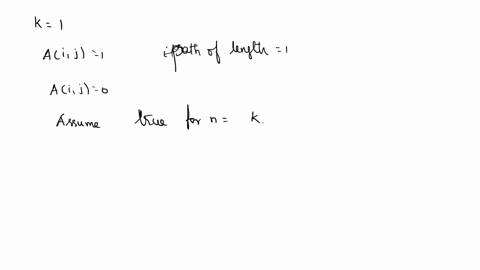 k = 1
A(i,j) = 1 if path of length = 1
A(i,j) = 0
Assume true for n = k.